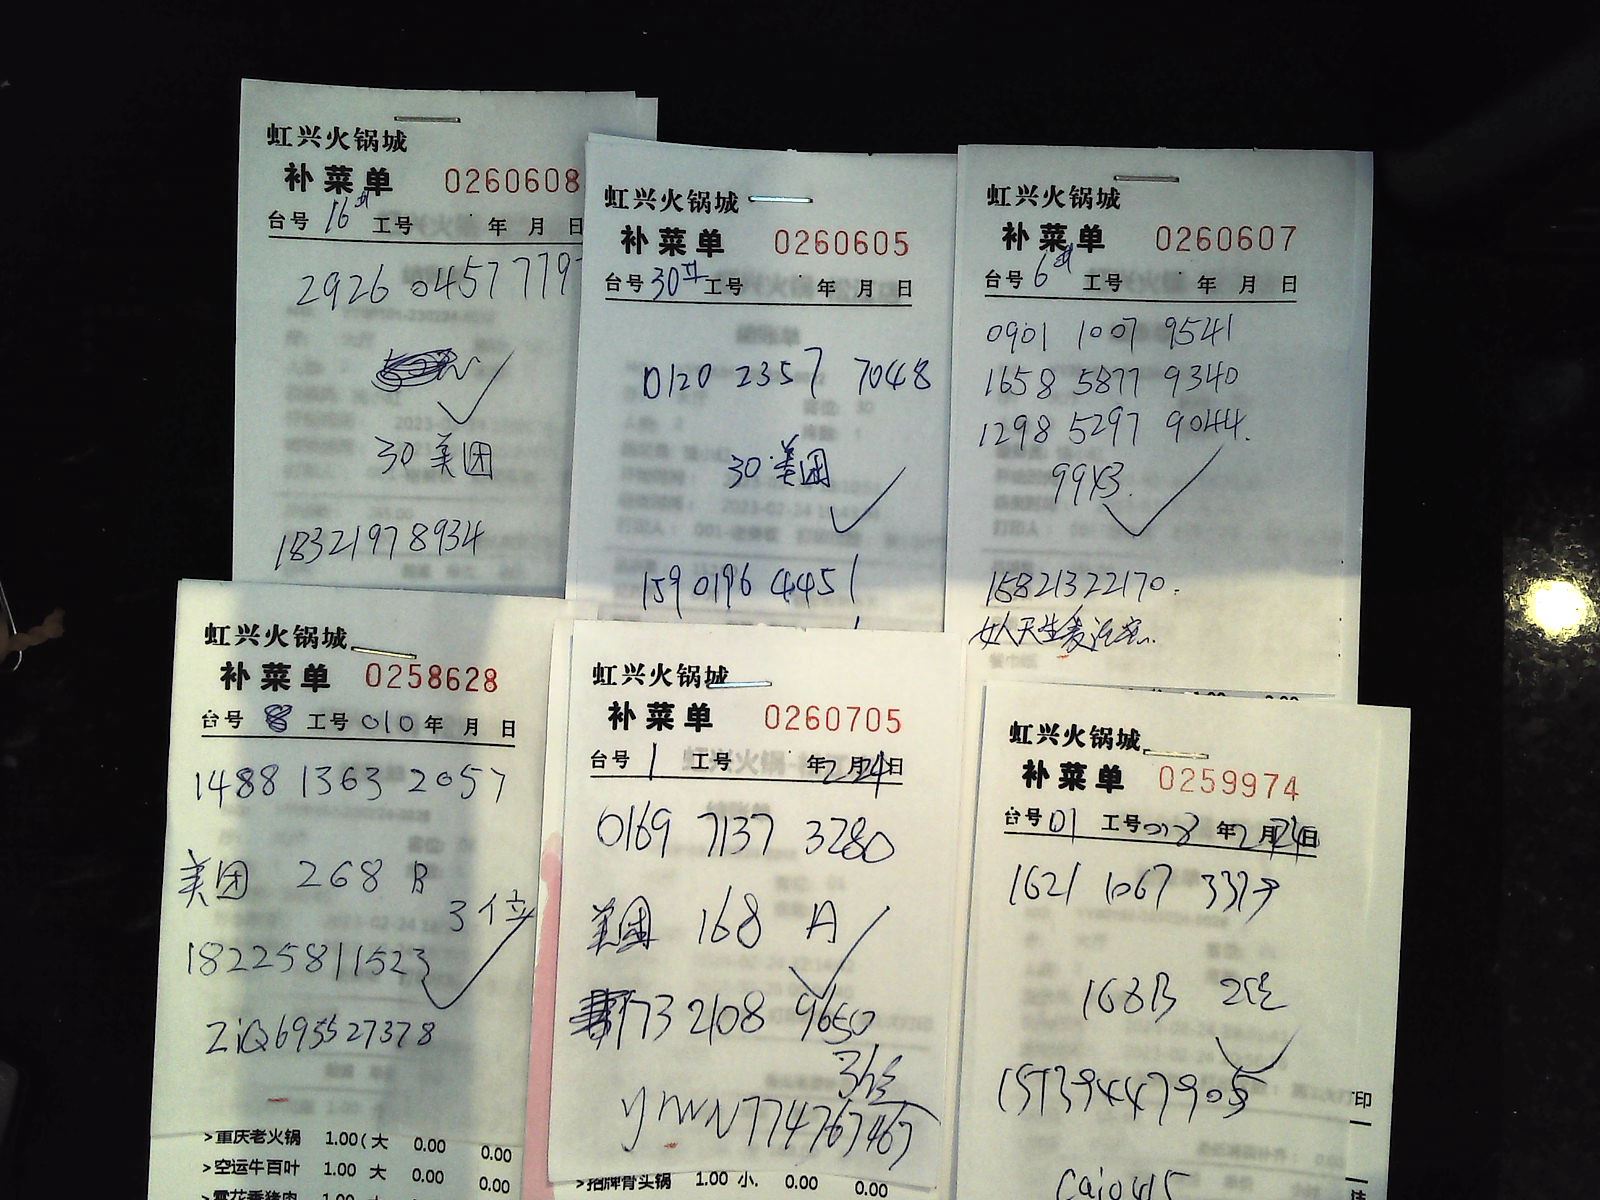 虹兴火锅城
补菜单 0260608
台号 16# 工号 年 月 日
2926 0457 779
30 美团
18321978934
虹兴火锅城
补菜单 0260605
台号 30# 工号 年 月 日
0120 2357 7048
30 美团
1590196 4451
虹兴火锅城
补菜单 0260607
台号 6# 工号 年 月 日
0901 1007 9541
1658 5877 9340
1298 5297 9044.
99X3.
15821322170.
女人天生爱
虹兴火锅城
补菜单 0258628
台号 8 工号 010 年 月 日
1488 1363 2057
美团 268 B
3位
18225811523
ZiQ695527378
>重庆老火锅 1.00(大 0.00 0.00
>空运牛百叶 1.00 大 0.00 0.00
虹兴火锅城
补菜单 0260705
台号 1 工号 年2月24日
0169 7137 3280
美团 168 A
173 2108 9650
3位
ynwN774767467
>招牌骨头锅 1.00 小. 0.00 0.00
虹兴火锅城
补菜单 0259974
台号 01 工号 028 年2月24日
1621 1067 3379
168B 2位
15739447905
印
caio415